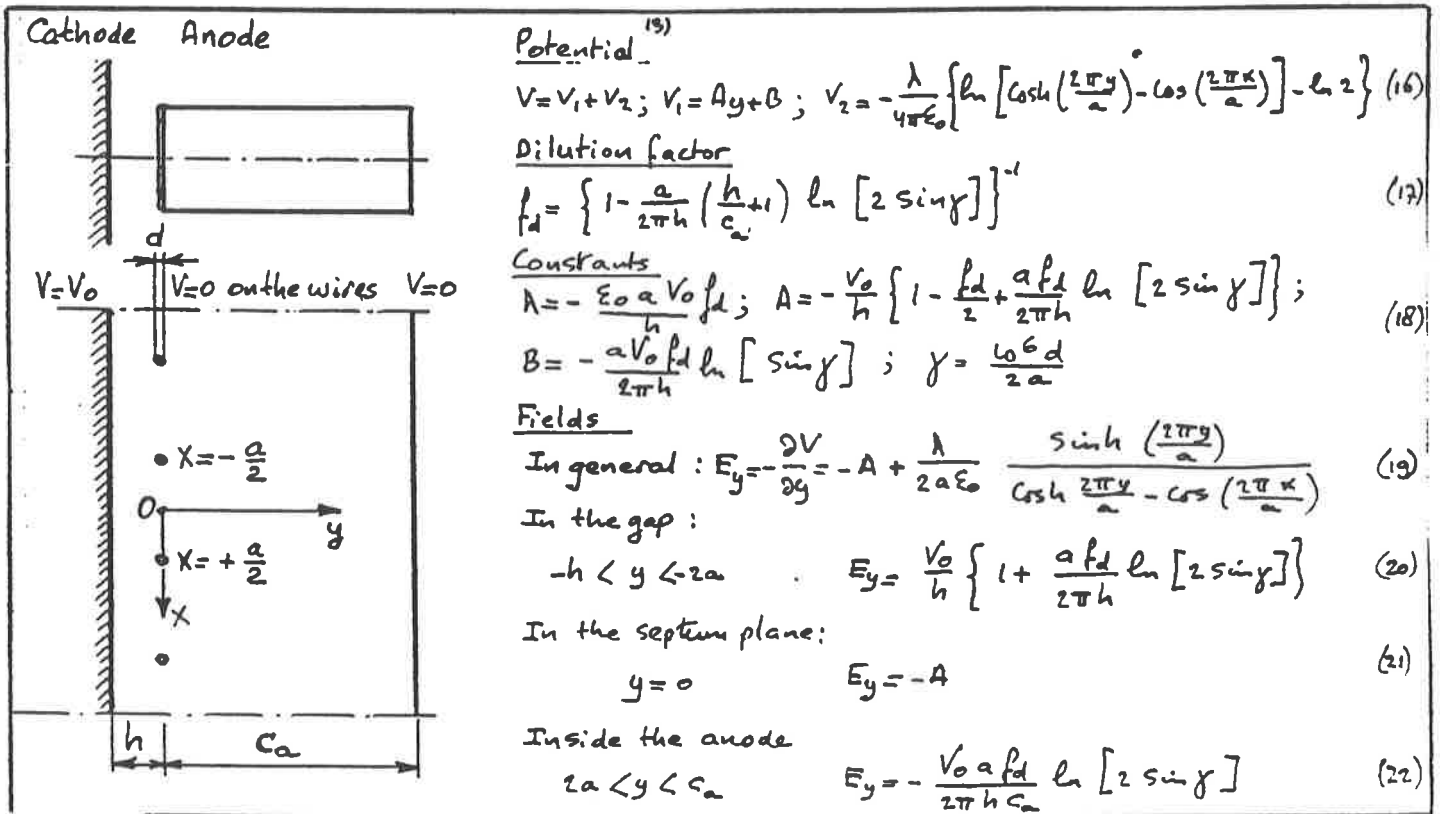 Cathode Anode
V=V₀ d V=0 on the wires V=0
X=-a/2
O
y
X=+a/2
X
h Ca
Potential ¹³⁾
V=V₁+V₂; V₁=Ay+B; V₂=-λ/(4πε₀){ln[cosh(2πy/a)-cos(2πx/a)]-ln 2} (16)
Dilution factor
f_d={1-a/(2πh)(h/c_a+1) ln [2 sinγ]}⁻¹ (17)
Constants
λ=-(ε₀ a V₀/h) f_d; A=-V₀/h{1-f_d/2+(a f_d/2πh) ln [2 sin γ]};
B=-(aV₀f_d/2πh) ln [sinγ]; γ=10⁶d/2a (18)
Fields
In general: E_y=-∂V/∂y=-A+λ/(2aε₀) sinh(2πy/a)/(cosh 2πy/a-cos(2πx/a)) (19)
In the gap:
-h<y<-2a E_y=V₀/h{1+(a f_d/2πh) ln [2 sinγ]} (20)
In the septum plane:
y=0 E_y=-A (21)
Inside the anode
2a<y<c_a E_y=-(V₀ a f_d/2πh c_a) ln [2 sinγ] (22)